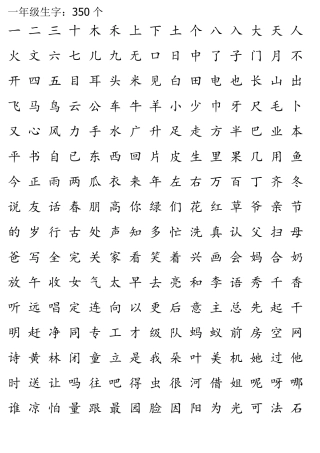 一年级生字：350 个
一 二 三 十 木 禾 上 下 土 个 八 入 大 天 人
火 文 六 七 儿 九 无 口 日 中 了 子 门 月 不
开 四 五 目 耳 头 米 见 白 田 电 也 长 山 出
飞 马 鸟 云 公 车 牛 羊 小 少 巾 牙 尺 毛 卜
又 心 风 力 手 水 广 升 足 走 方 半 巴 业 本
平 书 自 已 东 西 回 片 皮 生 里 果 几 用 鱼
今 正 雨 两 瓜 衣 来 年 左 右 万 百 丁 齐 冬
说 友 话 春 朋 高 你 绿 们 花 红 草 爷 亲 节
的 岁 行 古 处 声 知 多 忙 洗 真 认 父 扫 母
爸 写 全 完 关 家 看 笑 着 兴 画 会 妈 合 奶
放 午 收 女 气 太 早 去 亮 和 李 语 秀 千 香
听 远 唱 定 连 向 以 更 后 意 主 总 先 起 干
明 赶 净 同 专 工 才 级 队 蚂 蚁 前 房 空 网
诗 黄 林 闭 童 立 是 我 朵 叶 美 机 她 过 他
时 送 让 吗 往 吧 得 虫 很 河 借 姐 呢 呀 哪
谁 凉 怕 量 跟 最 园 脸 因 阳 为 光 可 法 石